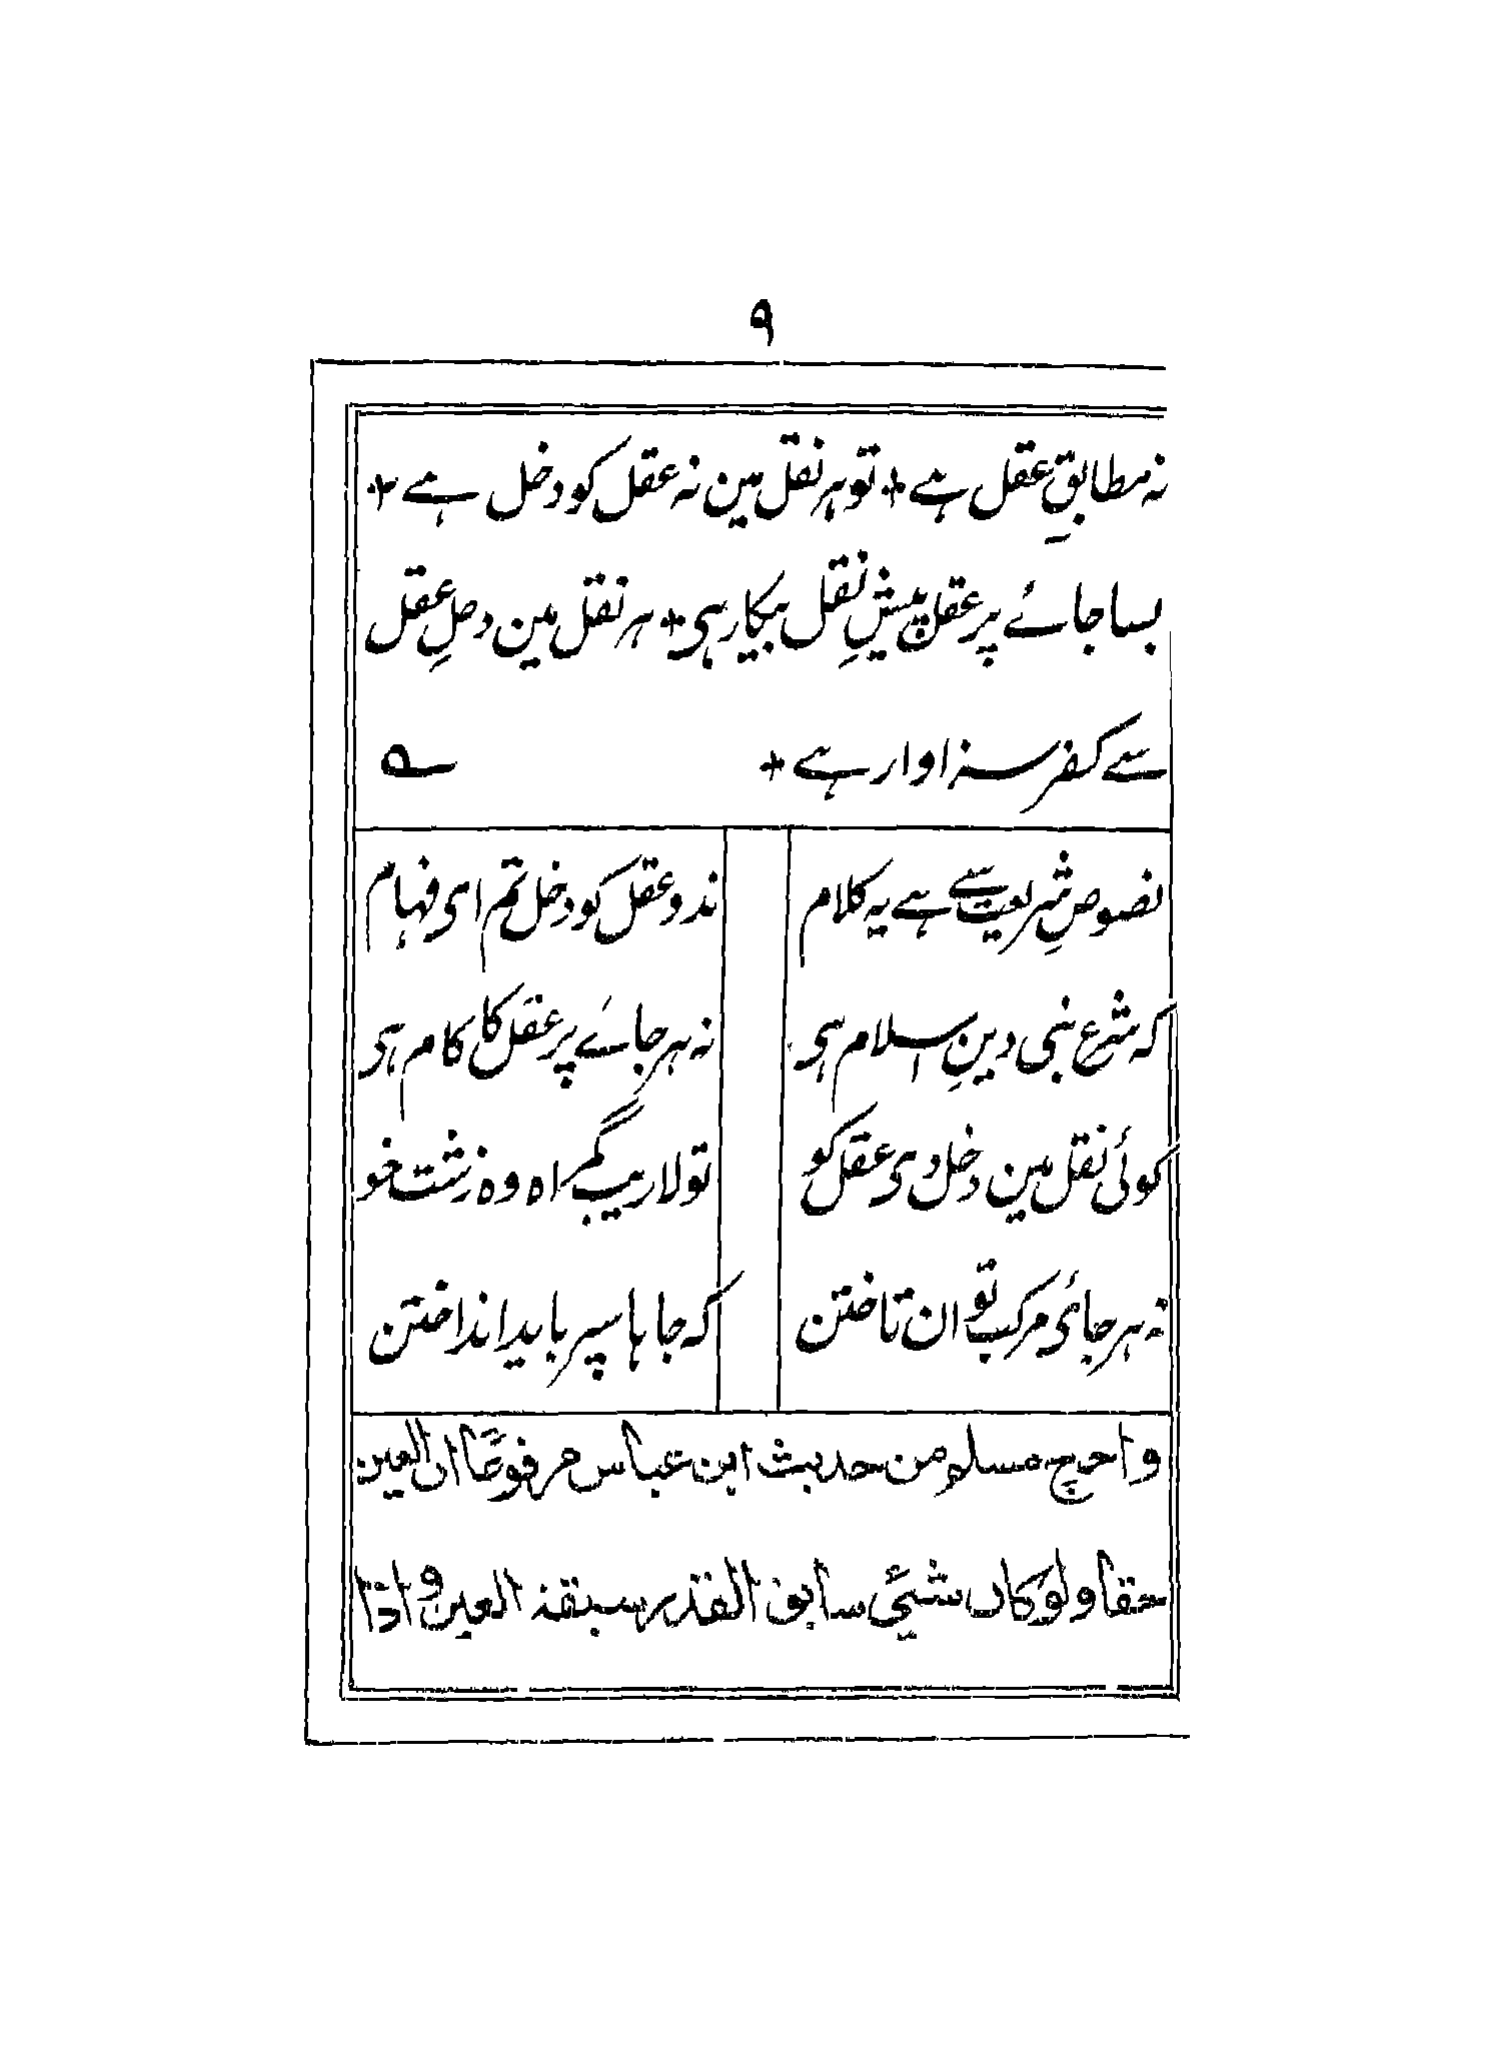 ۹
نہ مطابقِ عقل ہے + تو ہر نقل مین نہ عقل کو دخل ہے +
بسا جائے پر عقل پیشِ نقل بیکار ہی + ہر نقل مین دخلِ عقل
سے کفر سزاوار ہے +
نصوصِ شریعت سے ہے یہ کلام ندو عقل کو دخل تم ای فہام
کہ شرع نبی دینِ اسلام ہی نہ ہر جائے پر عقل کا کام ہی
کوئی نقل مین دخل دی عقل کو تو لاریب گمراہ وہ زشت خو
نہ ہر جائ مرکب توان تاختن کہ جاہا سپر باید انداختن
واخرج مسلم من حدیث ابن عباس مرفوعًا ان العین
حقا ولو کان شیئ سابق القدر سبقتہ العین و اذا